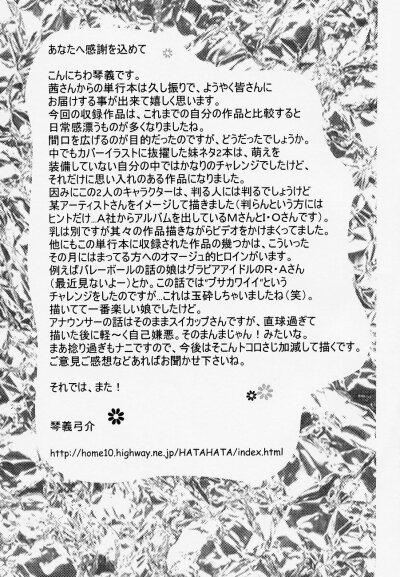 あなたへ感謝を込めて
こんにちわ琴義です。
茜さんからの単行本は久し振りで、ようやく皆さんに
お届けする事が出来て嬉しく思います。
今回の収録作品は、これまでの自分の作品と比較すると
日常感漂うものが多くなりましたね。
間口を広げるのが目的だったのですが、どうだったでしょうか。
中でもカバーイラストに抜擢した妹ネタ2本は、萌えを
装備していない自分の中ではかなりのチャレンジでしたけど、
それだけに思い入れのある作品になりました。
因みにこの2人のキャラクターは、判る人には判るでしょうけど
某アーティストさんをイメージして描きました(判らんという方には
ヒントだけ…A社からアルバムを出しているMさんとI・Oさんです)。
乳は別ですが其々の作品描きながらビデオをかけまくってました。
他にもこの単行本に収録された作品の幾つかは、こういった
その月にはまってる方へのオマージュ的ヒロインがいます。
例えばバレーボールの話の娘はグラビアアイドルのR・Aさん
(最近見ないよー)とか。この話では"ブサカワイイ"という
チャレンジをしたのですが…これは玉砕しちゃいましたね(笑)。
描いてて一番楽しい娘でしたけど。
アナウンサーの話はそのままスイカップさんですが、直球過ぎて
描いた後に軽〜く自己嫌悪。そのまんまじゃん!みたいな。
まあ捻り過ぎもナニですので、今後はそこんトコロさじ加減して描くです。
ご意見ご感想などあればお聞かせ下さいね。
それでは、また!
琴義弓介
http://home10.highway.ne.jp/HATAHATA/index.html